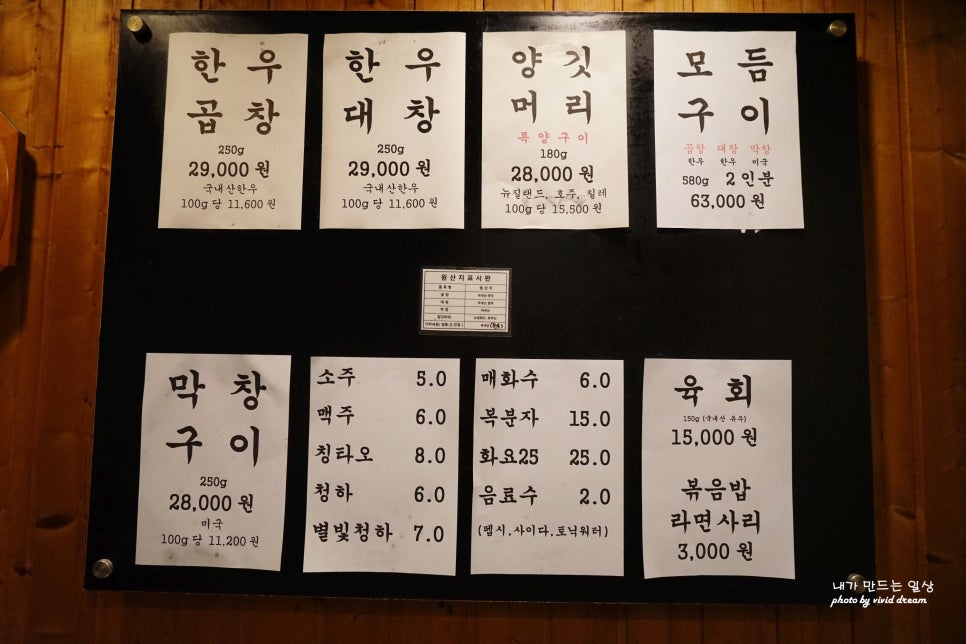 한 우
곱 창
250g
29,000 원
국내산한우
100g 당 11,600원
한 우
대 창
250g
29,000 원
국내산한우
100g 당 11,600원
양 깃
머 리
특 양 구 이
180g
28,000 원
뉴질랜드, 호주, 칠레
100g 당 15,500원
모 듬
구 이
곱창 대창 막창
한우 한우 미국
580g 2 인분
63,000 원
원산지표시판
막 창
구 이
250g
28,000 원
미국
100g 당 11,200원
소주 5.0
맥주 6.0
칭타오 8.0
청하 6.0
별빛청하 7.0
매화수 6.0
복분자 15.0
화요25 25.0
음료수 2.0
(펩시,사이다,토닉워터)
육 회
150g (국내산 육우)
15,000 원
볶음밥
라면사리
3,000 원
내가 만드는 일상
photo by vivid dream